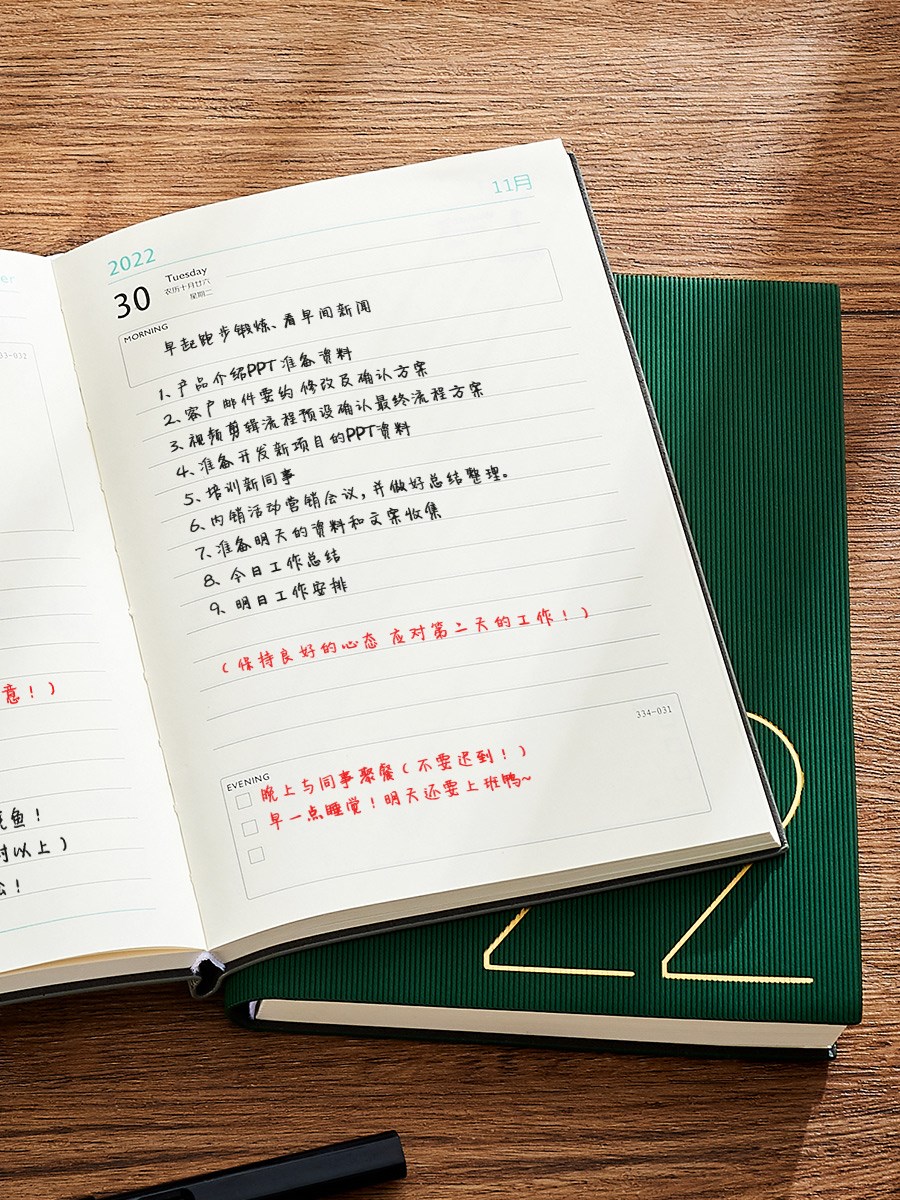 er
33-032
意！）
鱼！
时以上）
！
11月
2022
30 Tuesday
农历十月廿六
星期二
MORNING
早起跑步锻炼、看早间新闻
1、产品介绍PPT准备资料
2、客户邮件要约 修改及确认方案
3、视频剪辑流程预设确认最终流程方案
4、准备开发新项目的PPT资料
5、培训新同事
6、内销活动营销会议，并做好总结整理。
7、准备明天的资料和文案收集
8、今日工作总结
9、明日工作安排
（保持良好的心态 应对第二天的工作！）
334-031
EVENING
晚上与同事聚餐（不要迟到！）
早一点睡觉！明天还要上班鸭~
22